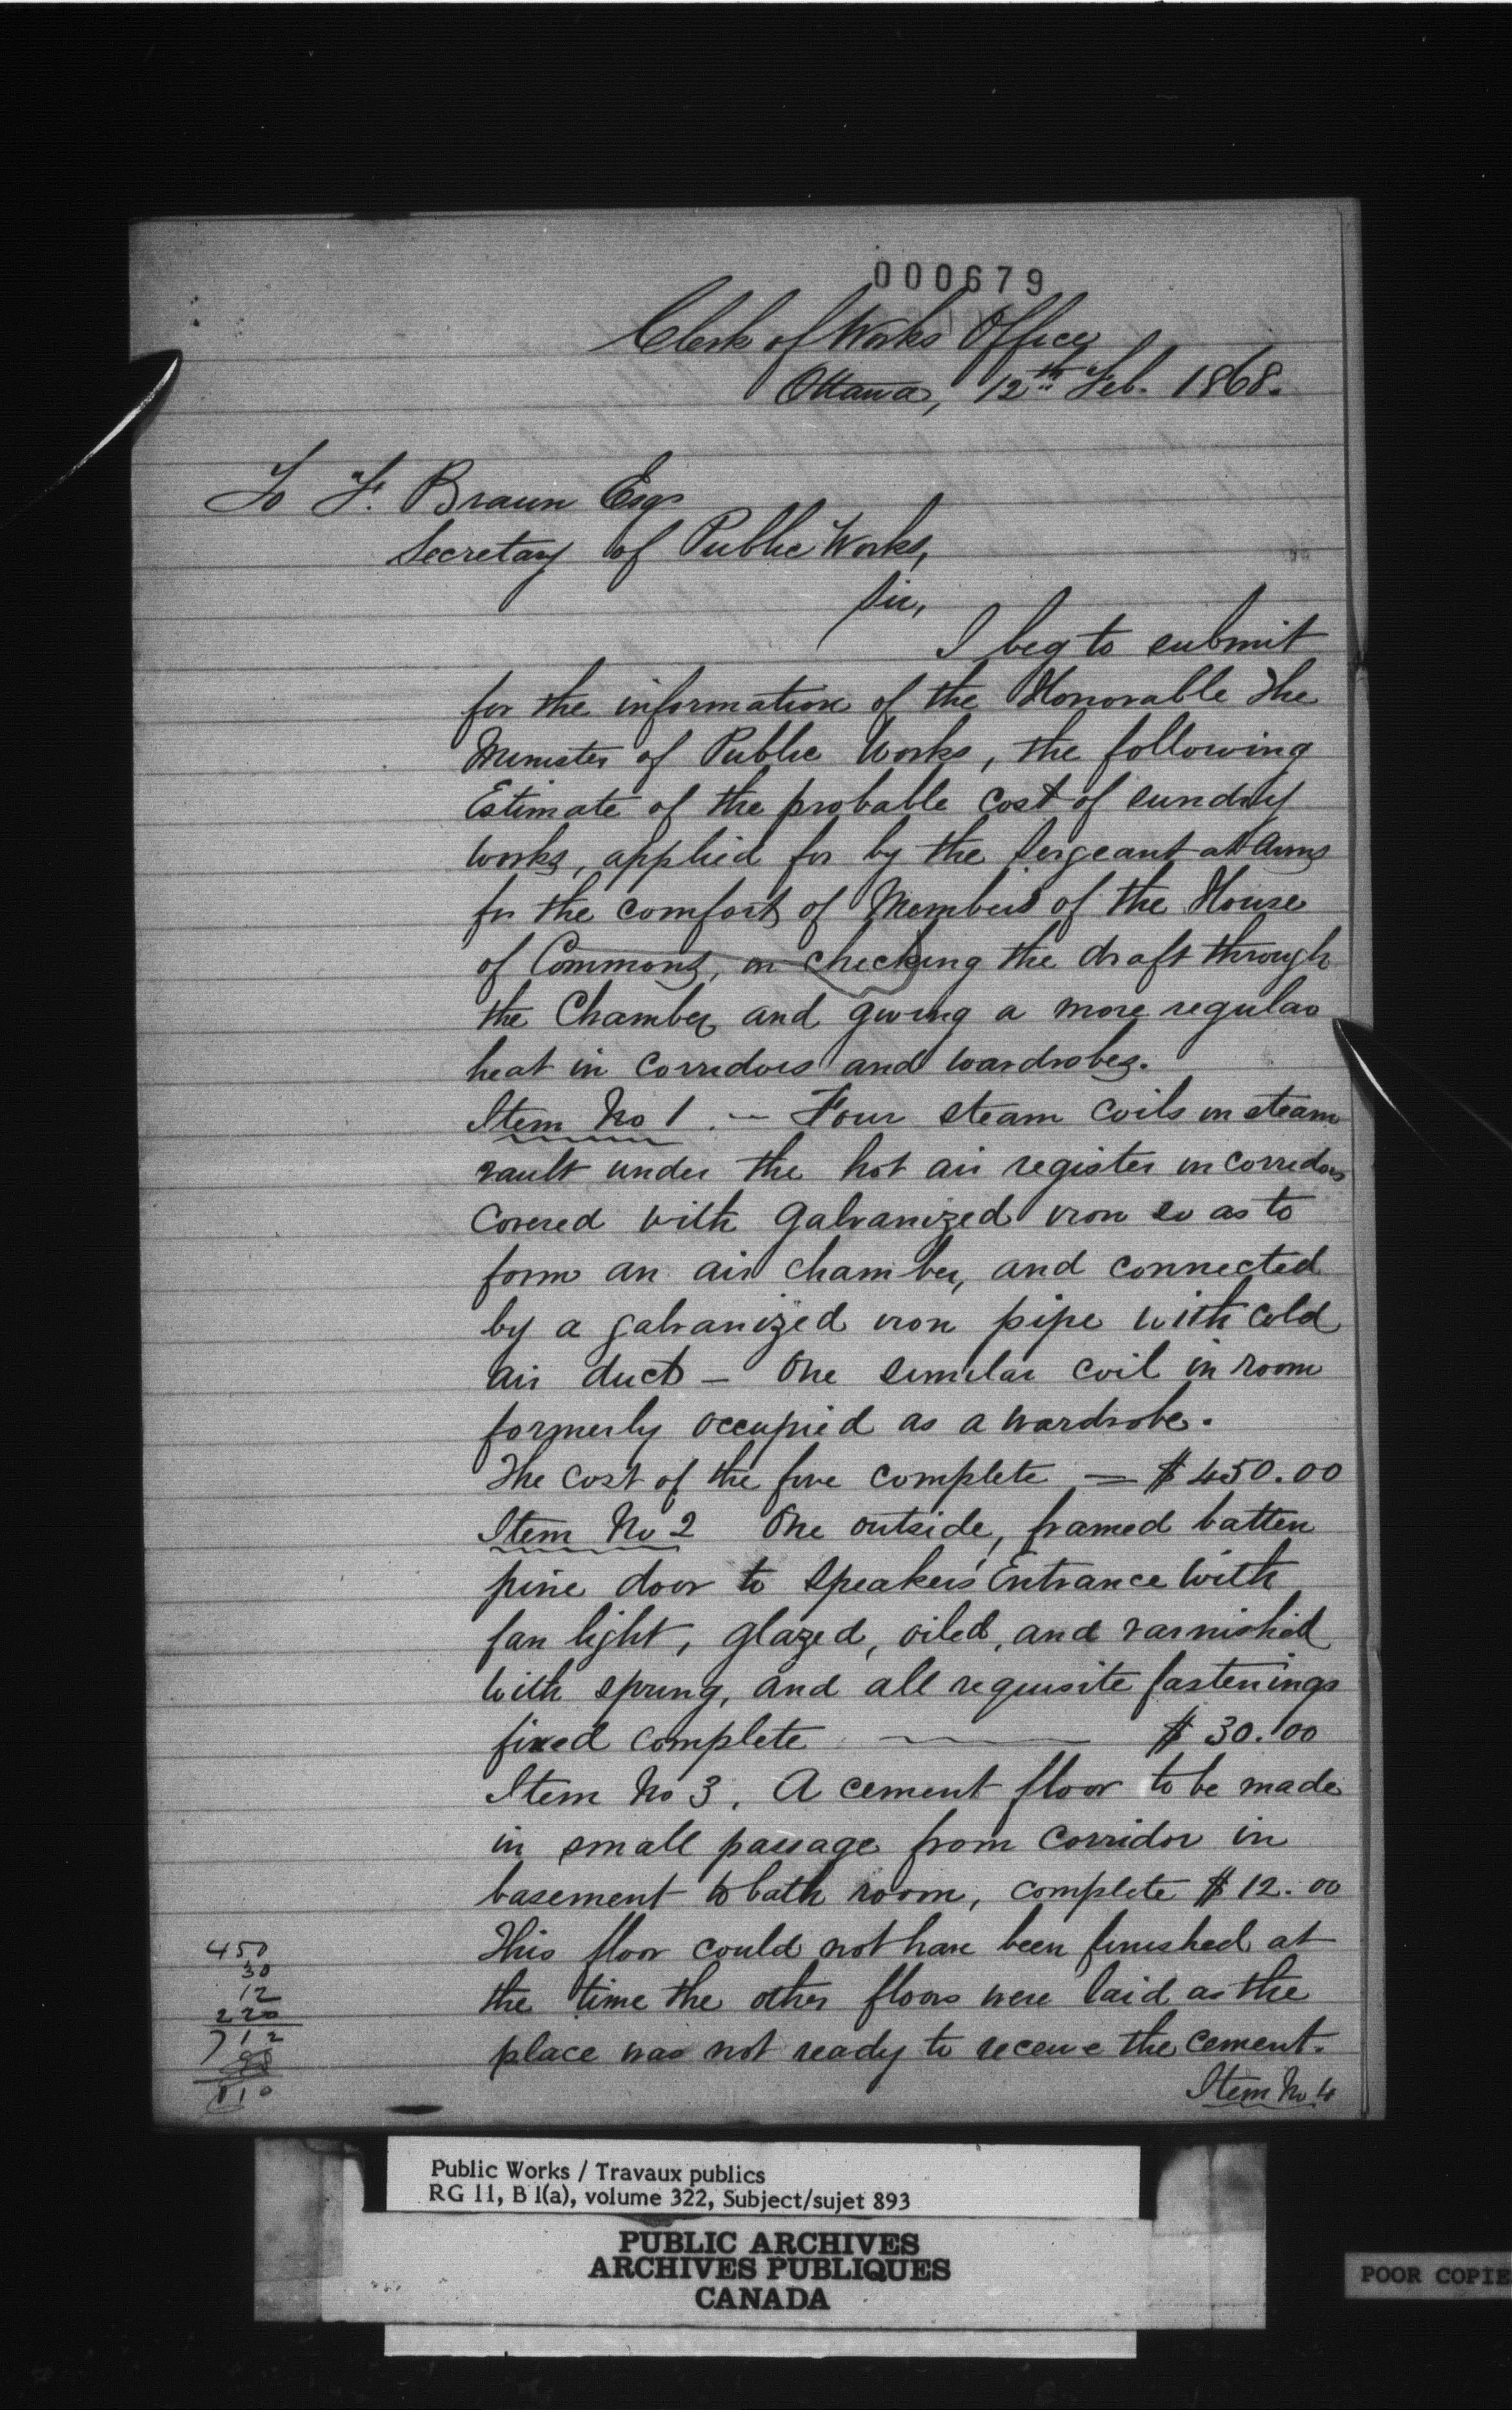 000679
Clerk of Works Office
Ottawa, 12th Feb. 1868.
To F. Braun Esqr
Secretary of Public Works,
Sir,
I beg to submit
for the information of the Honorable The
Minister of Public Works, the following
Estimate of the probable Cost of sundry
works, applied for by the Sergeant at Arms
for the comfort of Members of the House
of Commons, in checking the draft through
the Chamber and giving a more regular
heat in Corridors and wardrobes.
Item No 1. — Four steam Coils in steam
vault under the hot air register in corridors
Covered with Galvanized iron so as to
form an air chamber, and connected
by a galvanized iron pipe with Cold
air duct — One similar Coil in room
formerly occupied as a wardrobe.
The Cost of the five Complete — $450.00
Item No 2 One outside, framed batten
pine door to Speakers' Entrance with
fan light, glazed, oiled, and varnished
with spring, and all requisite fastenings
fixed Complete — $30.00
Item No 3. A cement floor to be made
in small passage from Corridor in
basement to bath room, complete $12.00
This floor could not have been finished at
the time the other floors were laid as the
place was not ready to receive the cement.
450
30
12
220
712
810
Item No 4
Public Works / Travaux publics
RG 11, B 1(a), volume 322, Subject/sujet 893
PUBLIC ARCHIVES
ARCHIVES PUBLIQUES
CANADA
POOR COPIE